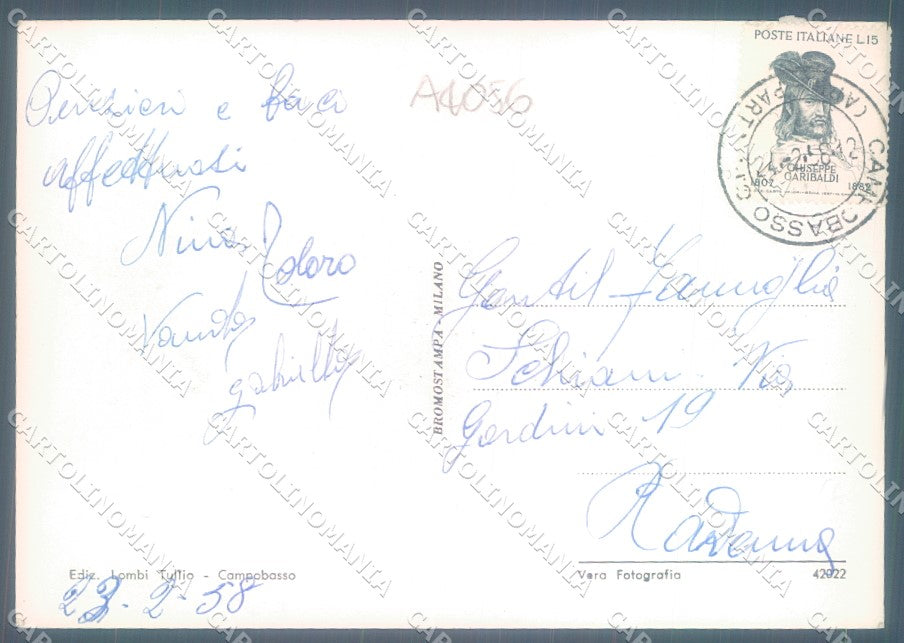 POSTE ITALIANE L.15
GIUSEPPE
GARIBALDI
1807 1882
CAMPOBASSO
A4056
Pensieri e baci
affettuosi
Nina
Vanda
Gabriella
BROMOSTAMPA - MILANO
Gentil Famiglia
Schiani Via
Gordini 19
Ravenna
Ediz. Lombi Tullio - Campobasso
23-2-58
Vera Fotografia 42022
CARTOLINOMANIA